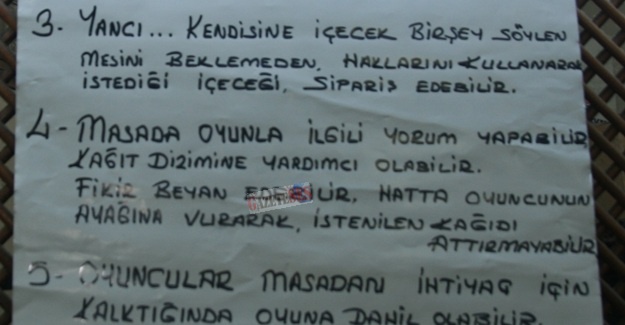 3- YANCI... KENDİSİNE İÇECEK BİRŞEY SÖYLEN
MESİNİ BEKLEMEDEN, HAKLARINI KULLANARAK
İSTEDİĞİ İÇECEĞİ, SİPARİŞ EDEBİLİR.
4- MASADA OYUNLA İLGİLİ YORUM YAPABİLİR
KAĞIT DİZİMİNE YARDIMCI OLABİLİR.
FİKİR BEYAN EDEBİLİR, HATTA OYUNCUNUN
AYAĞINA VURARAK, İSTENİLEN KAĞIDI
ATTIRMAYABİLİR
5- OYUNCULAR MASADAN İHTİYAÇ İÇİN
KALKTIĞINDA OYUNA DAHİL OLABİLİR.